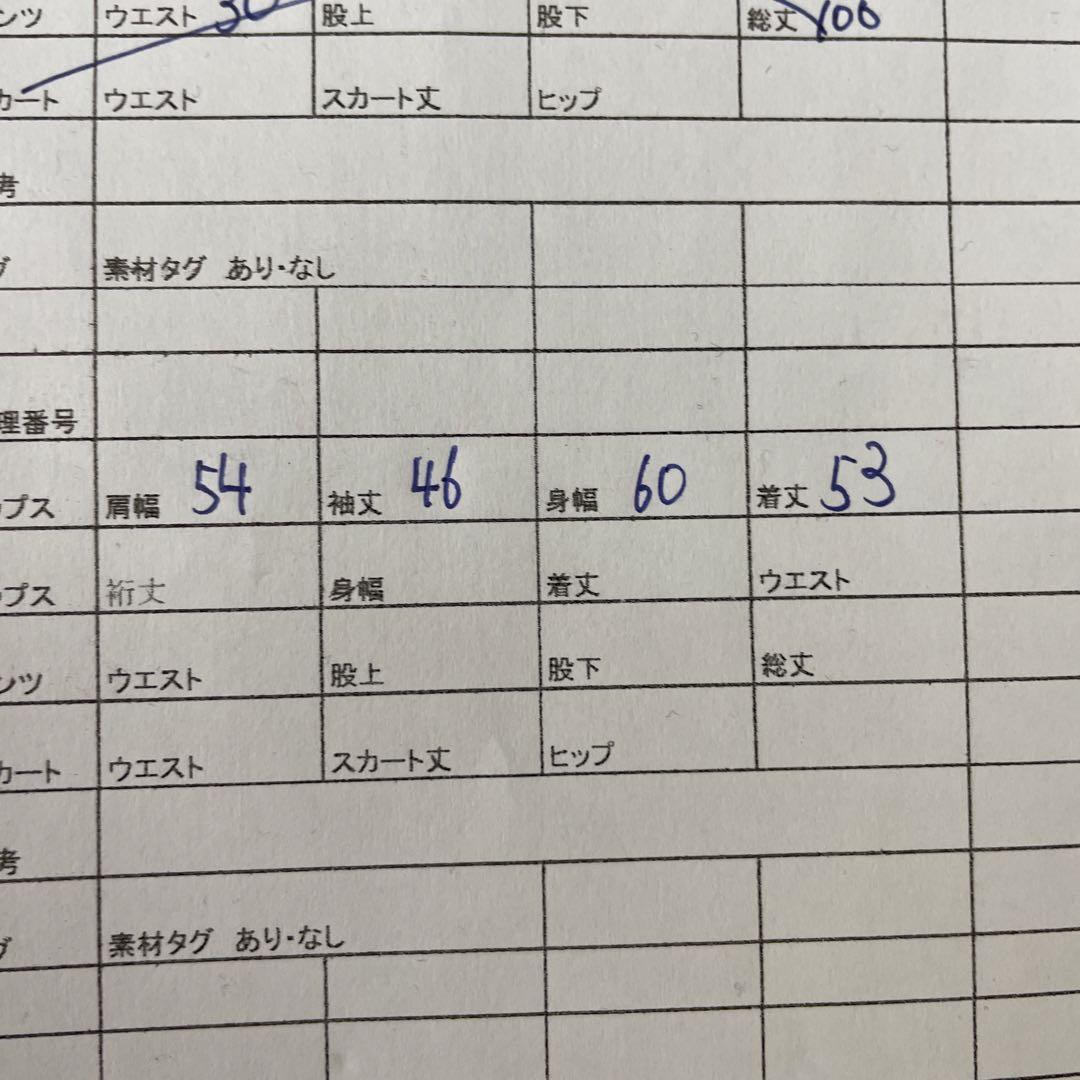 ンツ ウエスト 股上 股下 総丈 100
カート ウエスト スカート丈 ヒップ
考
グ 素材タグ あり・なし
理番号
ップス 肩幅 54 袖丈 46 身幅 60 着丈 53
ップス 裄丈 身幅 着丈 ウエスト
ンツ ウエスト 股上 股下 総丈
カート ウエスト スカート丈 ヒップ
考
グ 素材タグ あり・なし